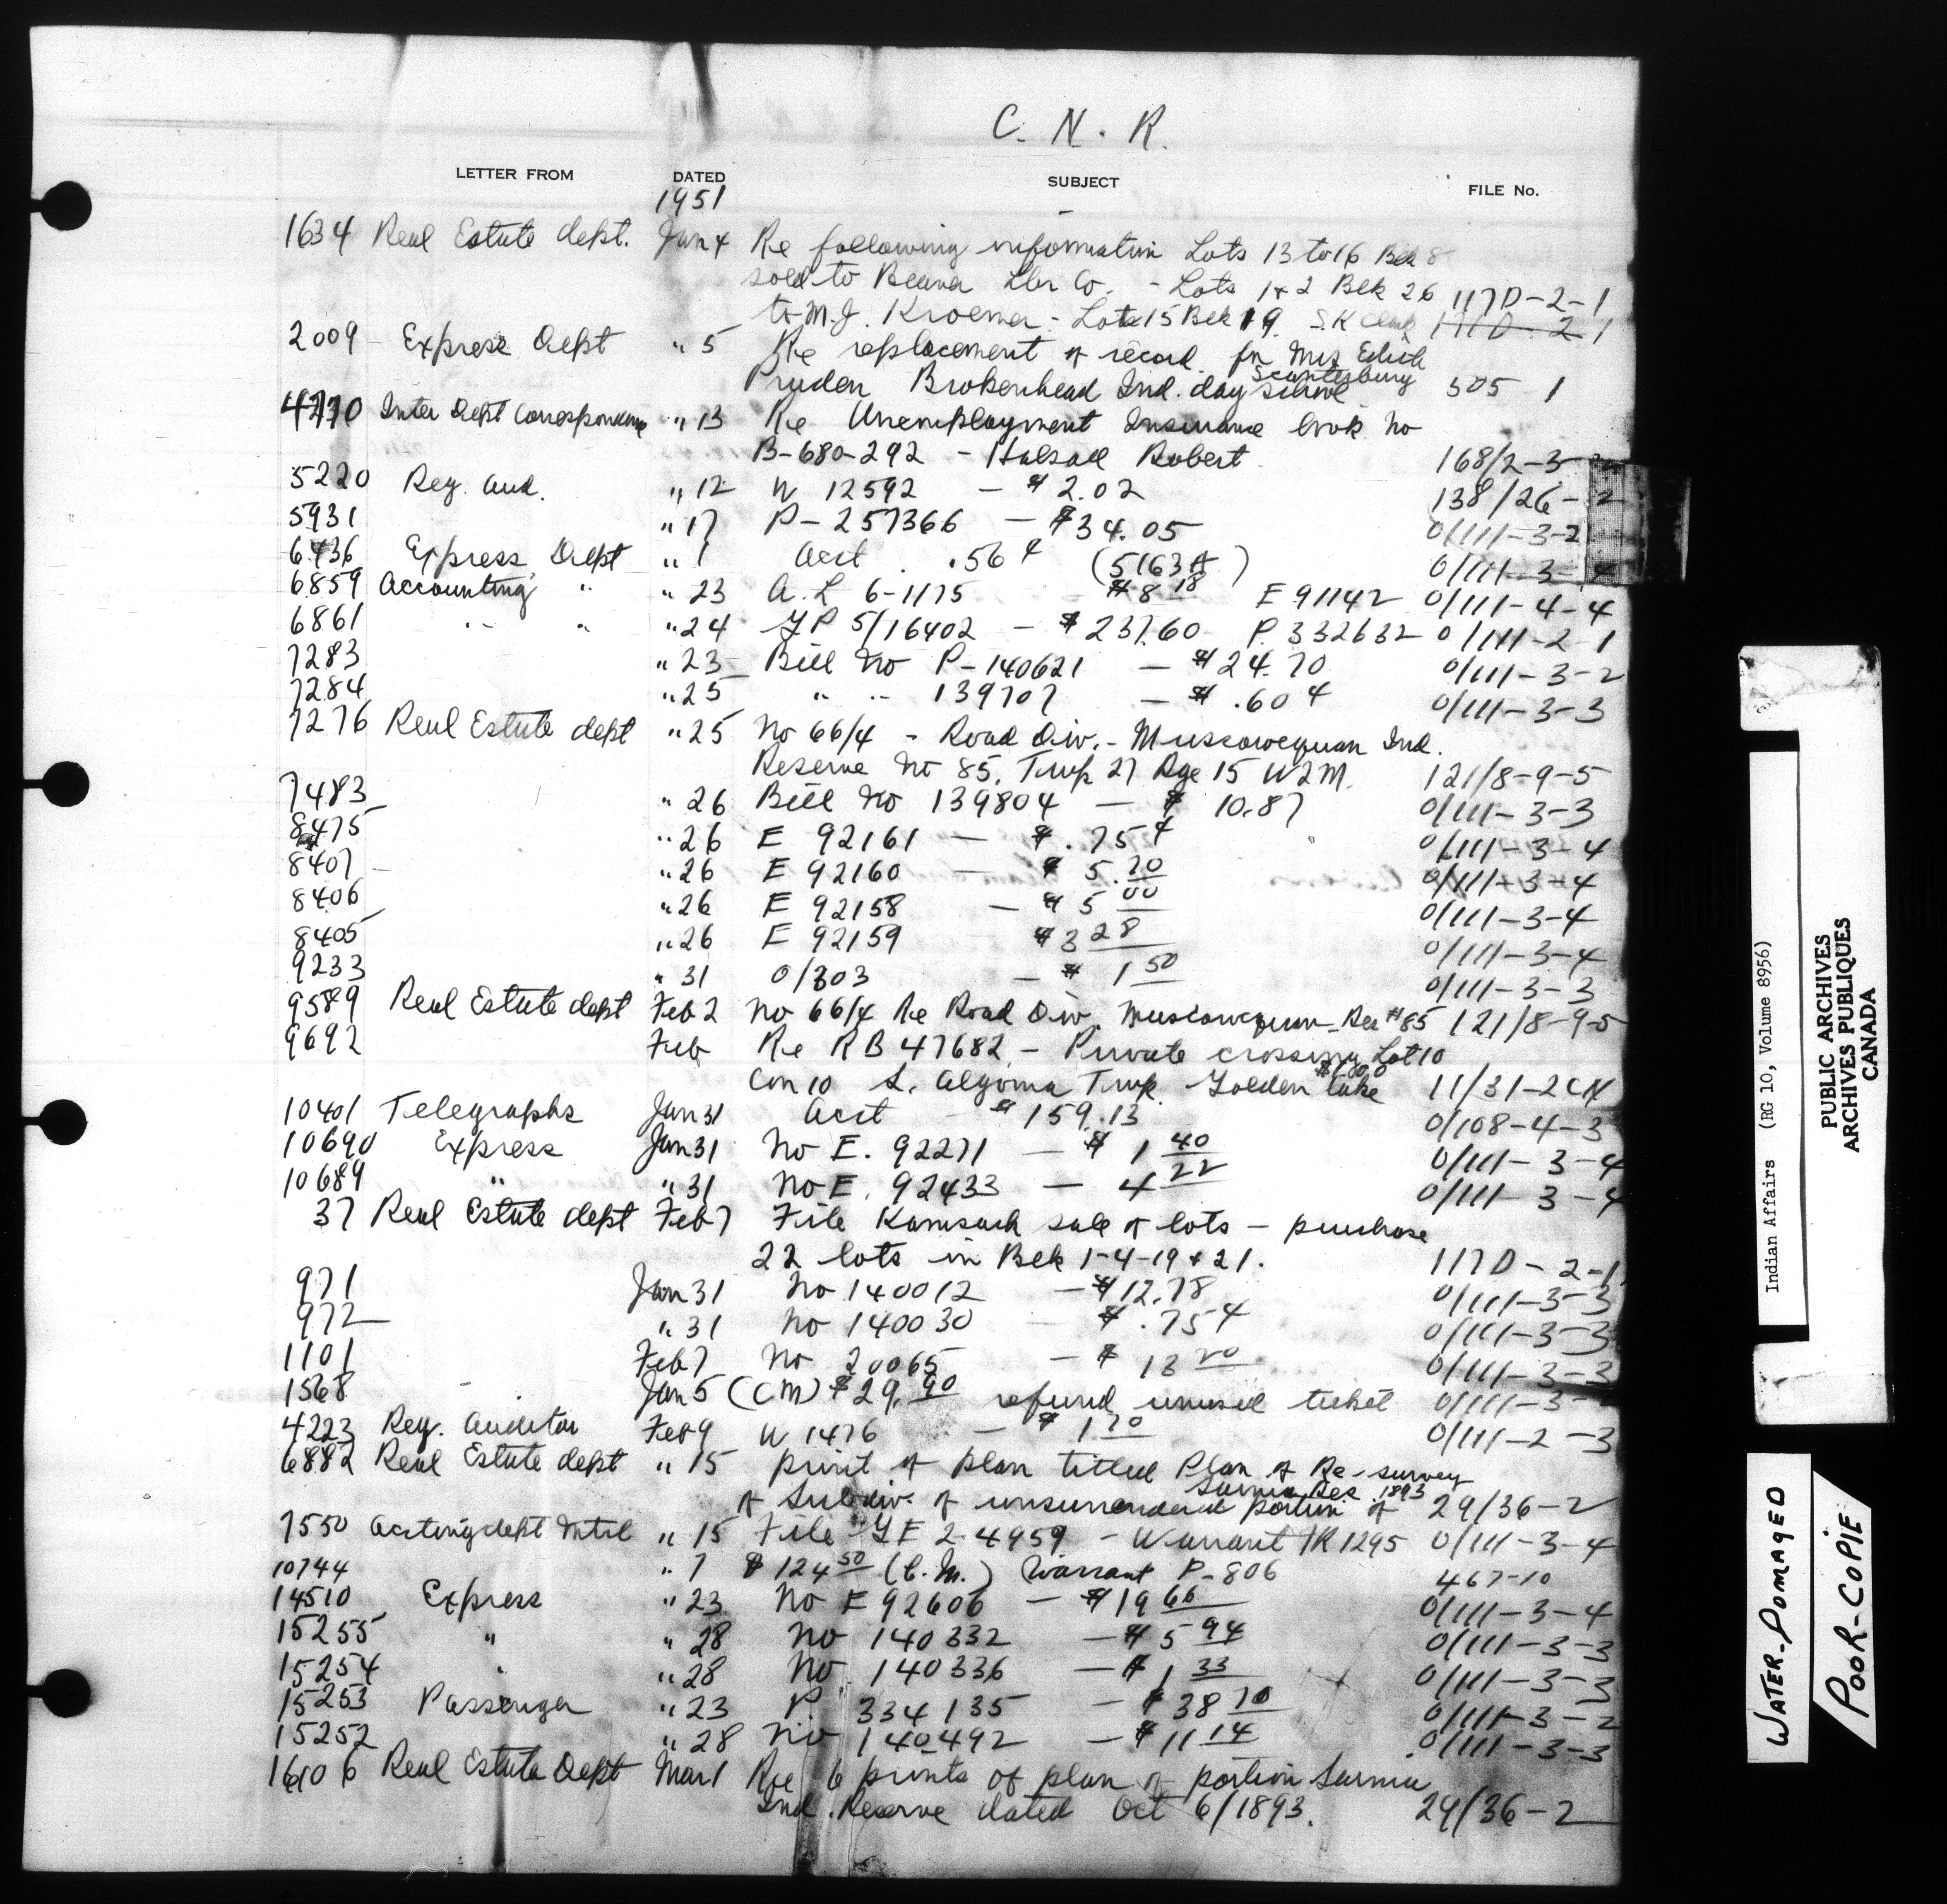 C. N. R.
LETTER FROM DATED SUBJECT FILE No.
1951
1634 Real Estate dept. Jan 4 Re following information Lots 13 to 16 Blk 8
sold to Beaver Lbr Co. - Lots 1 + 2 Blk 26 117D-2-1
to M.J. Kroemer - Lots 15 Blk 19. S.K 117D-2-1
2009 Express Dept " 5 Re replacement of record for Mrs Edith
Pruden Brokenhead Ind. day school Scanterbury 305-1
4770 Inter Dept Correspondence " 13 Re Unemployment Insurance book no
B-680-292 - Halsall Robert 168/2-3
5220 Reg. Aud. " 12 W 12592 - $2.02 138/26-2
5931 " 17 P-257366 - $34.05 0/111-3-2
6436 Express Dept " 1 Acct .56 ¢ (5163A) 0/111-3-4
6859 Accounting " " 23 A.L 6-1175 $8 18 E 91142 0/111-4-4
6861 " " " 24 YP 5/16402 - $237.60 P. 332632 0/111-2-1
7283 " 23 Bill No P-140621 - $24.70 0/111-3-2
7284 " 25 " " 139707 - $ .60 ¢ 0/111-3-3
7276 Real Estate dept " 25 No 66/4 - Road Div. - Muscowequan Ind.
Reserve No 85. Twp 27 Rge 15 W2M. 121/8-9-5
7483 " 26 Bill No 139804 - $ 10.87 0/111-3-3
8475 " 26 E 92161 - $ .75 ¢ 0/111-3-4
8407 " 26 E 92160 - $ 5.70 0/111-3-4
8406 " 26 E 92158 - $ 5 00 0/111-3-4
8405 " 26 E 92159 $3 28 0/111-3-4
9233 " 31 0/303 - $ 1 50 0/111-3-3
9589 Real Estate dept Feb 2 No 66/4 Re Road Div. Muscowequan Res #85 121/8-9-5
9692 Feb Re RB 47682 - Private crossing Lot 10
Con 10 S. Algoma Twp. Golden Lake 11/31-2CN
10401 Telegraphs Jan 31 Acct - $159.13 0/108-4-3
10690 Express Jan 31 No E. 92271 - $ 1 40 0/111-3-4
10689 " " 31 No E. 92433 - 4 22 0/111-3-4
37 Real Estate dept Feb 7 File Kamsack sale of lots - purchase
22 lots in Blk 1-4-19 + 21. 117D-2-1
971 Jan 31 No 140012 - $12.78 0/111-3-3
972 " 31 No 140030 $ .75 ¢ 0/111-3-3
1101 Feb 7 No 20065 - $ 13 20 0/111-3-3
1568 Jan 5 (CM) $29.90 refund unused ticket 0/111-3-
4223 Reg. Auditor Feb 9 W 1476 - $ 1 70 0/111-2-3
6882 Real Estate dept " 15 print of plan titled Plan of Re-survey
of Subdiv. of unsurrendered portion of Sarnia Res. 1893 29/36-2
7550 Accting dept Mtrl " 15 File YE 2-4959 - Warrant TR 1295 0/111-3-4
10744 " 7 $124 50 (C.M.) Warrant P-806 467-10
14510 Express " 23 No E 92606 - $19 66 0/111-3-4
15255 " " 28 No 140332 - $5 94 0/111-3-3
15254 " " 28 No 140336 - $1 33 0/111-3-3
15253 Passenger " 23 P. 334135 - $38 70 0/111-3-2
15252 " 28 No 140492 - $11 14 0/111-3-3
16106 Real Estate Dept Mar 1 Re 6 prints of plan of portion Sarnia
Ind. Reserve dated Oct 6/1893. 29/36-2
Indian Affairs (RG 10, Volume 8956)
PUBLIC ARCHIVES
ARCHIVES PUBLIQUES
CANADA
WATER-DOMAGED
POOR-COPIE